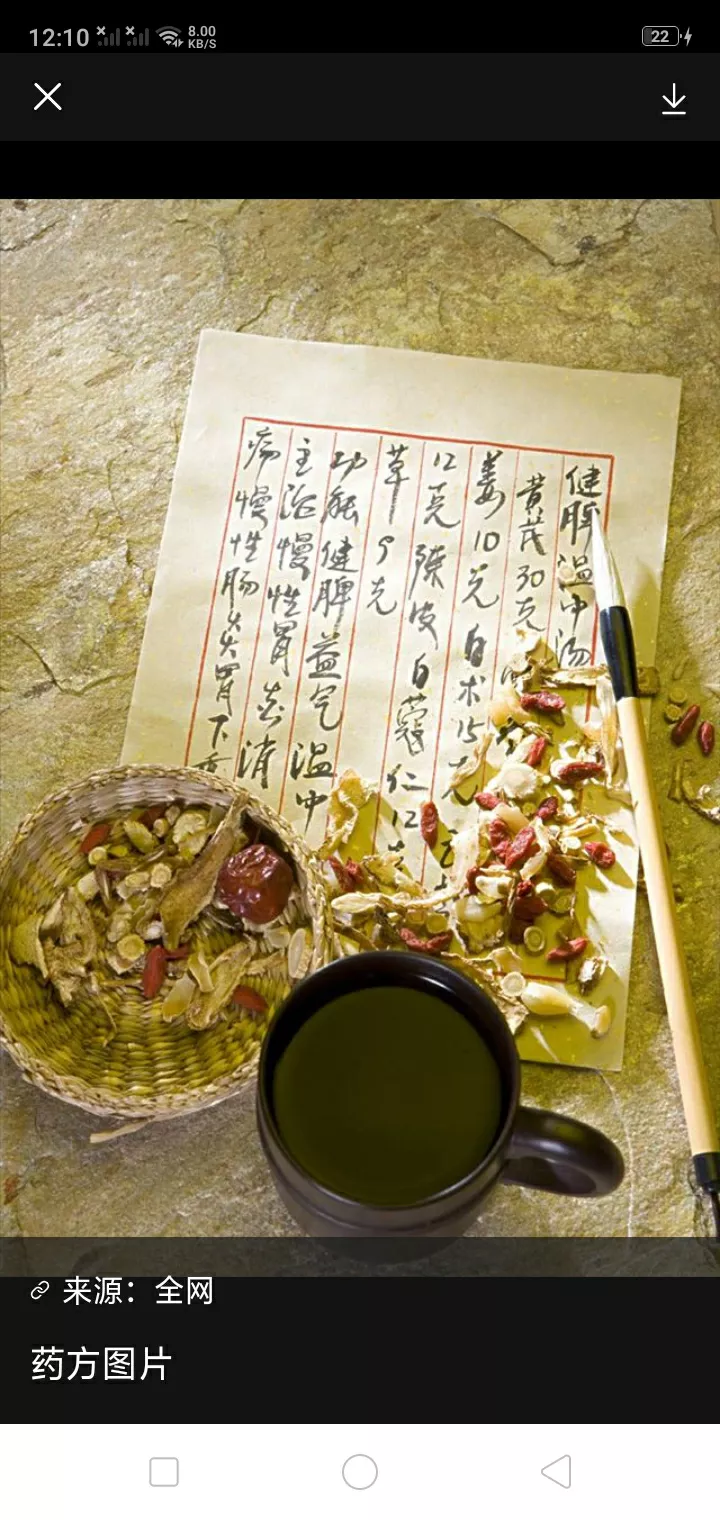 12:10
8.00
KB/S
22
健脾温中汤
黄芪30克
姜10克 白术15克
12克 陈皮 白蔻仁12
草9克
功能健脾益气温中
主治慢性胃炎溃
疡慢性肠炎胃下
来源：全网
药方图片